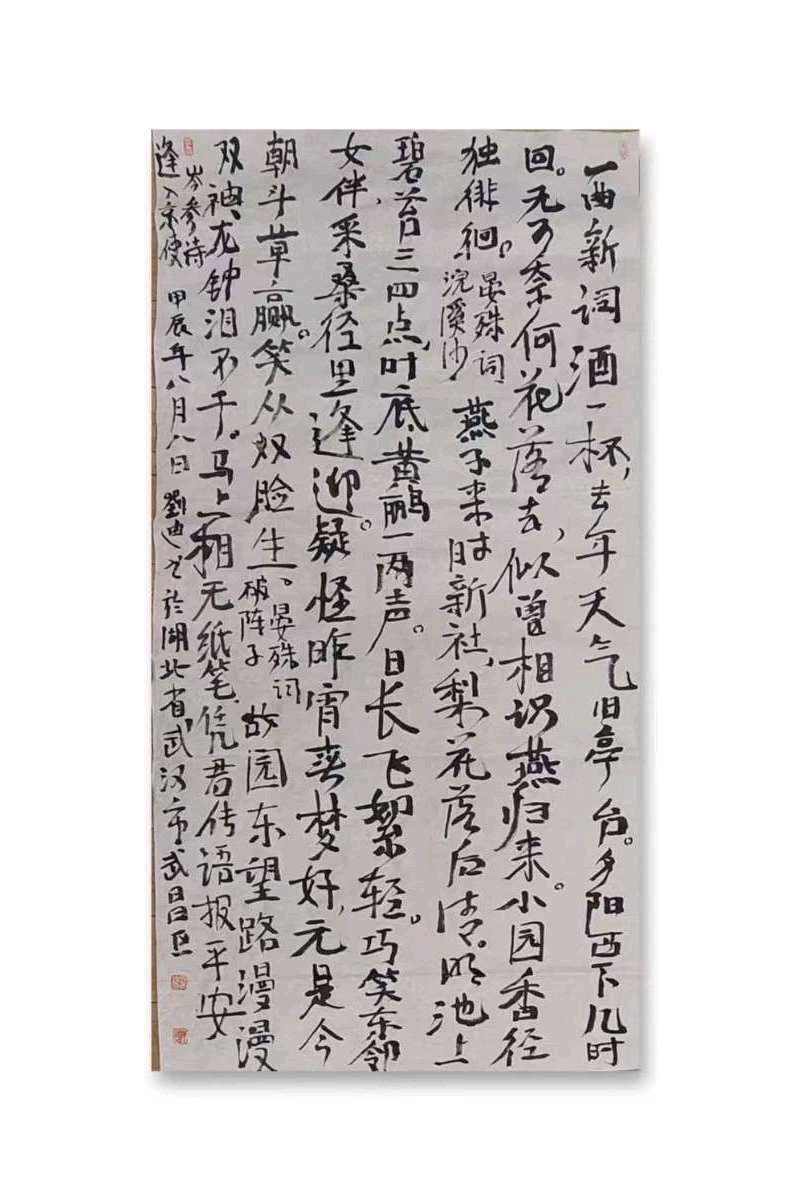 一曲新词酒一杯,去年天气旧亭台。夕阳西下几时
回。无可奈何花落去,似曾相识燕归来。小园香径
独徘徊。晏殊词
浣溪沙
燕子来时新社,梨花落后清明。池上
碧苔三四点,叶底黄鹂一两声。日长飞絮轻。巧笑东邻
女伴,采桑径里逢迎。疑怪昨宵春梦好,元是今
朝斗草赢。笑从双脸生。晏殊词
破阵子
故园东望路漫漫
双袖龙钟泪不干。马上相无纸笔,凭君传语报平安
岑参诗
逢入京使
甲辰年八月八日劉迪书於湖北省武汉市武昌区